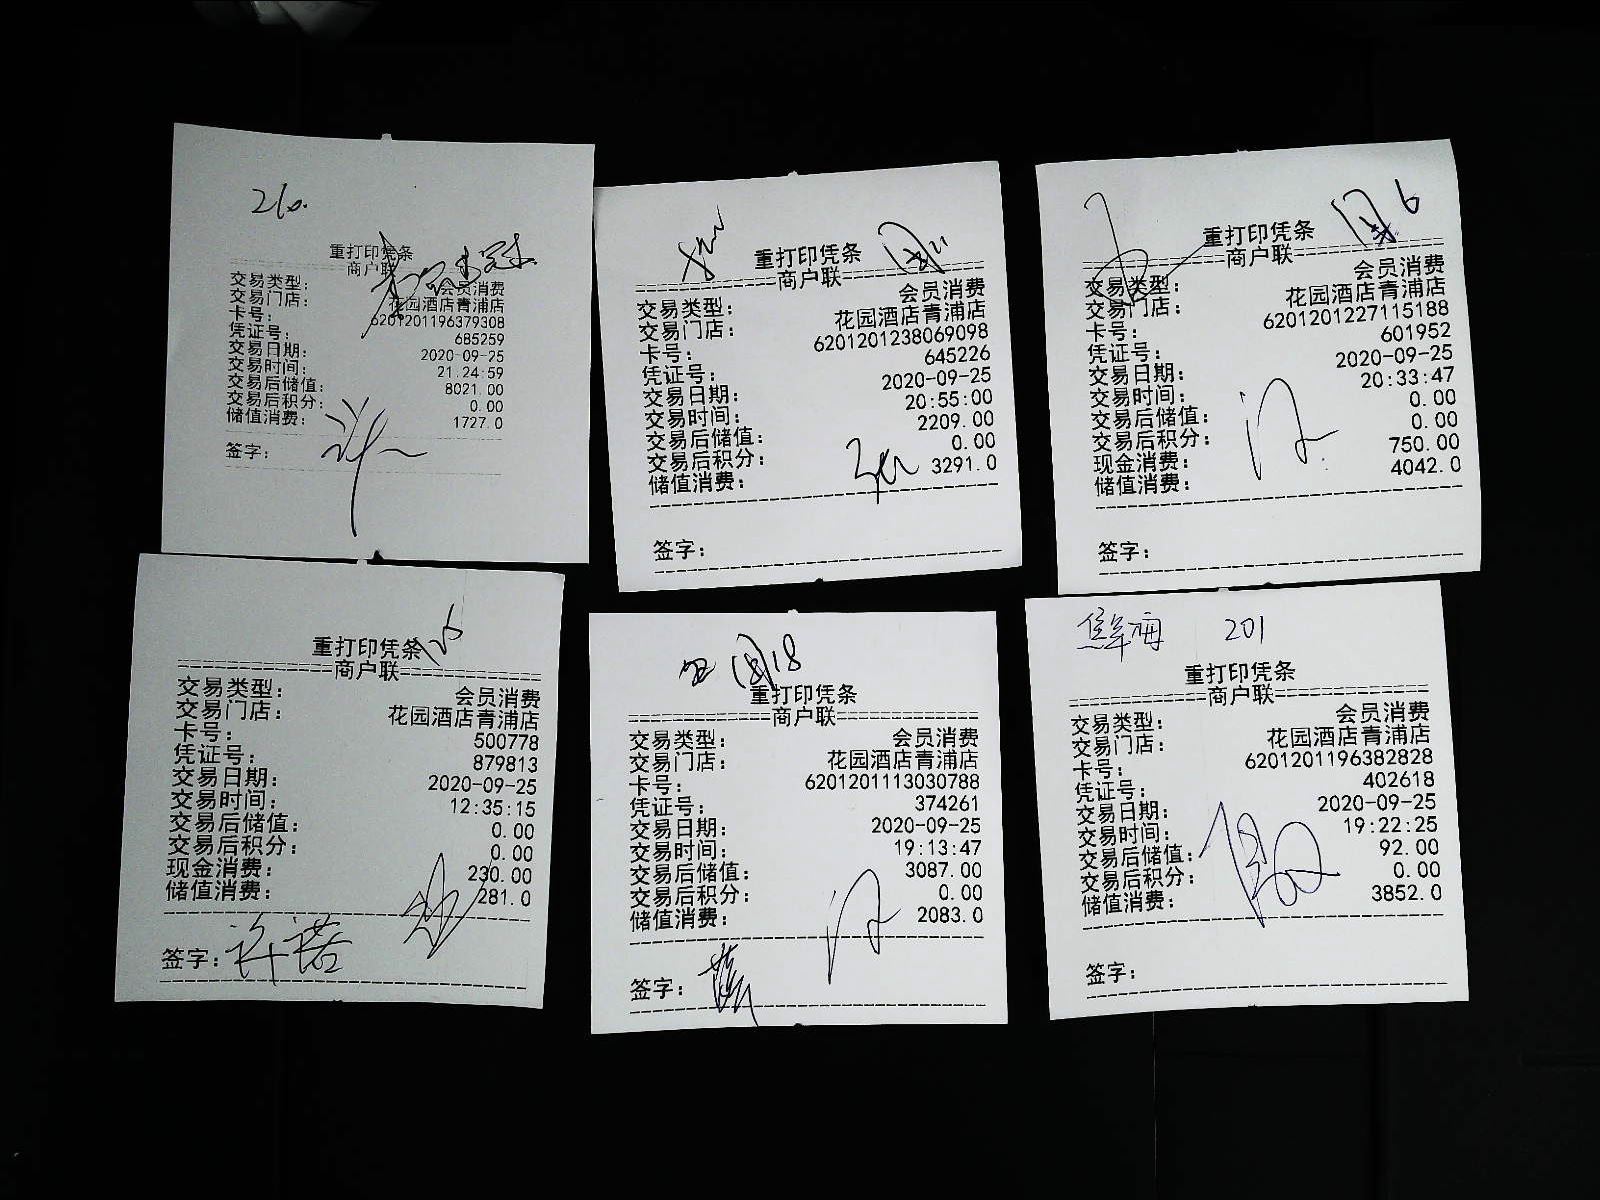 210.
重打印凭条
商户联
交易类型: 会员消费
交易门店: 花园酒店青浦店
卡号: 6201201196379308
凭证号: 685259
交易日期: 2020-09-25
交易时间: 21:24:59
交易后储值: 8021.00
交易后积分: 0.00
储值消费: 1727.0
签字:
重打印凭条
商户联
交易类型: 会员消费
交易门店: 花园酒店青浦店
卡号: 6201201238069098
凭证号: 645226
交易日期: 2020-09-25
交易时间: 20:55:00
交易后储值: 2209.00
交易后积分: 0.00
储值消费: 3291.0
签字:
6
重打印凭条
商户联
交易类型: 会员消费
交易门店: 花园酒店青浦店
卡号: 6201201227115188
凭证号: 601952
交易日期: 2020-09-25
交易时间: 20:33:47
交易后储值: 0.00
交易后积分: 0.00
现金消费: 750.00
储值消费: 4042.0
签字:
重打印凭条
商户联
交易类型: 会员消费
交易门店: 花园酒店青浦店
卡号: 500778
凭证号: 879813
交易日期: 2020-09-25
交易时间: 12:35:15
交易后储值: 0.00
交易后积分: 0.00
现金消费: 230.00
储值消费: 281.0
签字: 许诺
18
重打印凭条
商户联
交易类型: 会员消费
交易门店: 花园酒店青浦店
卡号: 6201201113030788
凭证号: 374261
交易日期: 2020-09-25
交易时间: 19:13:47
交易后储值: 3087.00
交易后积分: 0.00
储值消费: 2083.0
签字:
201
重打印凭条
商户联
交易类型: 会员消费
交易门店: 花园酒店青浦店
卡号: 6201201196382828
凭证号: 402618
交易日期: 2020-09-25
交易时间: 19:22:25
交易后储值: 92.00
交易后积分: 0.00
储值消费: 3852.0
签字: